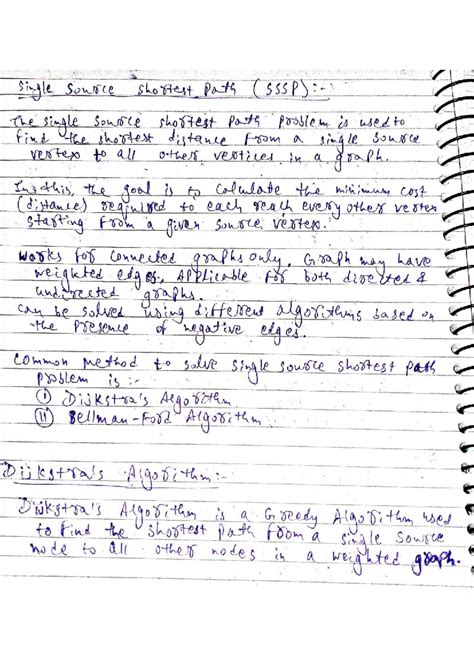 Single Source Shortest Path (SSSP):-
The single source shortest path problem is used to
find the shortest distance from a single source
vertex to all other vertices in a graph.
In this, the goal is to calculate the minimum cost
(distance) required to each reach every other vertex
starting from a given source vertex.
Works for connected graphs only. Graph may have
weighted edges, Applicable for both directed &
undirected graphs.
can be solved using different algorithms based on
the presence of negative edges.
Common method to solve single source shortest path
problem is :-
(i) Dijkstra's Algorithm
(ii) Bellman-Ford Algorithm
Dijkstra's Algorithm:-
Dijkstra's Algorithm is a Greedy Algorithm used
to find the shortest path from a single source
node to all other nodes in a weighted graph.